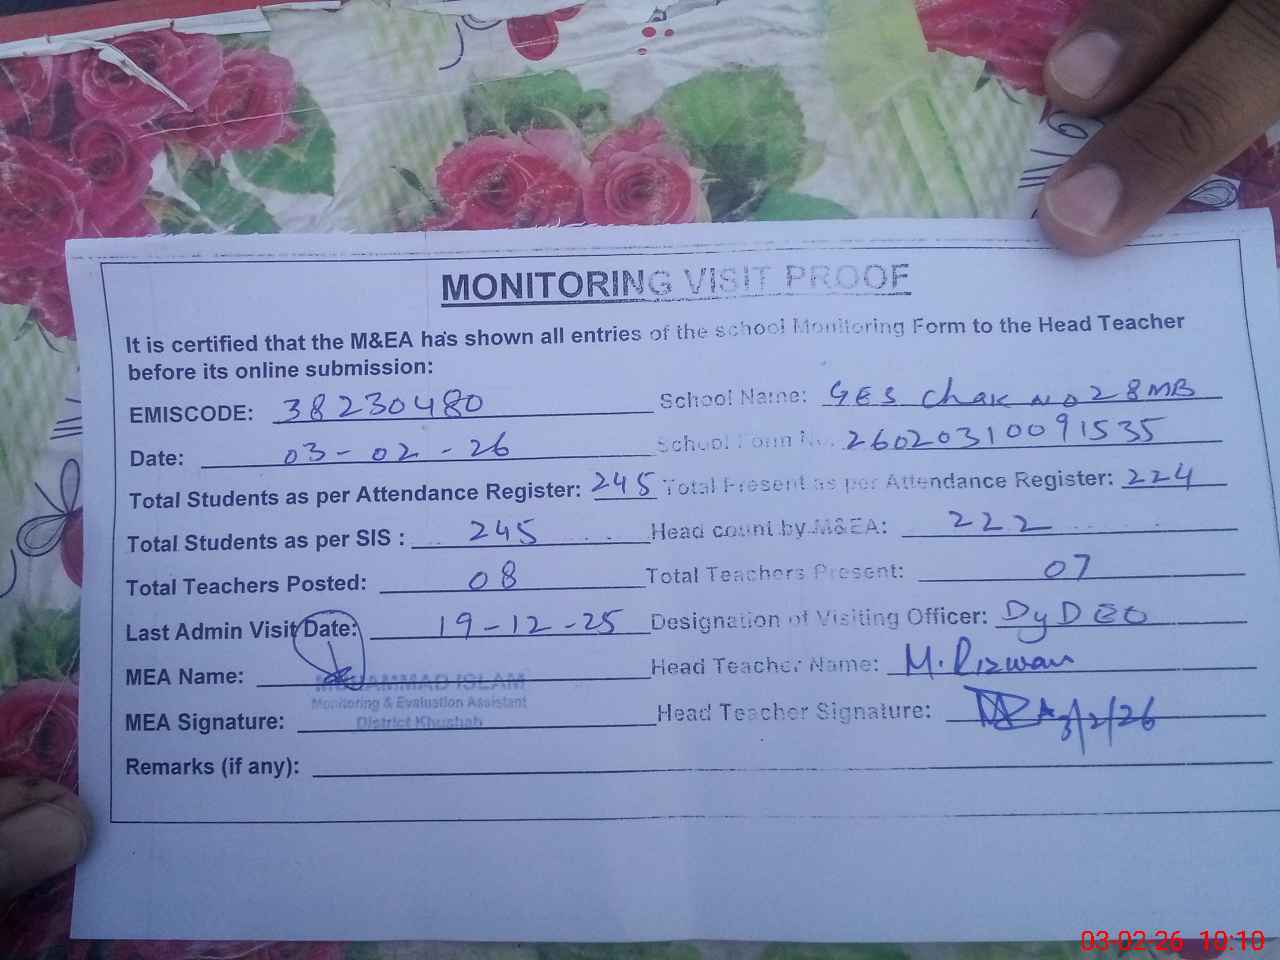 MONITORING VISIT PROOF
It is certified that the M&EA has shown all entries of the school Monitoring Form to the Head Teacher
before its online submission:
EMISCODE: 38230480 School Name: GES Chak NO 28MB
Date: 03-02-26 School Form No. 26020310091535
Total Students as per Attendance Register: 245 Total Present as per Attendance Register: 224
Total Students as per SIS : 245 Head count by M&EA: 222
Total Teachers Posted: 08 Total Teachers Present: 07
Last Admin Visit Date: 19-12-25 Designation of Visiting Officer: DyDEO
MEA Name: Head Teacher Name: M. Rizwan
MUHAMMAD ISLAM
Monitoring & Evaluation Assistant
District Khushab
MEA Signature: Head Teacher Signature: 3/2/26
Remarks (if any):
03-02-26 10:10